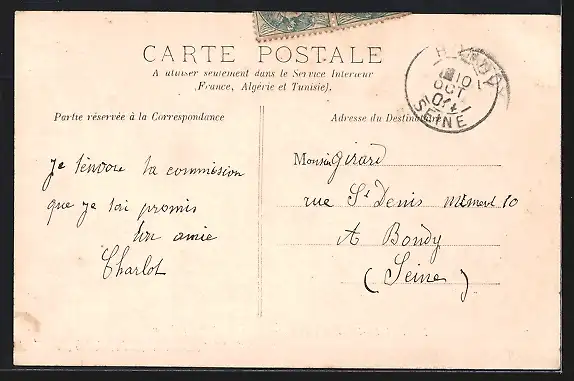 CARTE POSTALE
A utiliser seulement dans le Service Intérieur
(France, Algérie et Tunisie).
Partie réservée à la Correspondance
Adresse du Destinataire
10
OCT
04
SEINE
Je t'envoie ta commission
que je t'ai promis
ton amie
Charlot
Monsieur Girard
rue St Denis numero 10
A Bondy
(Seine)